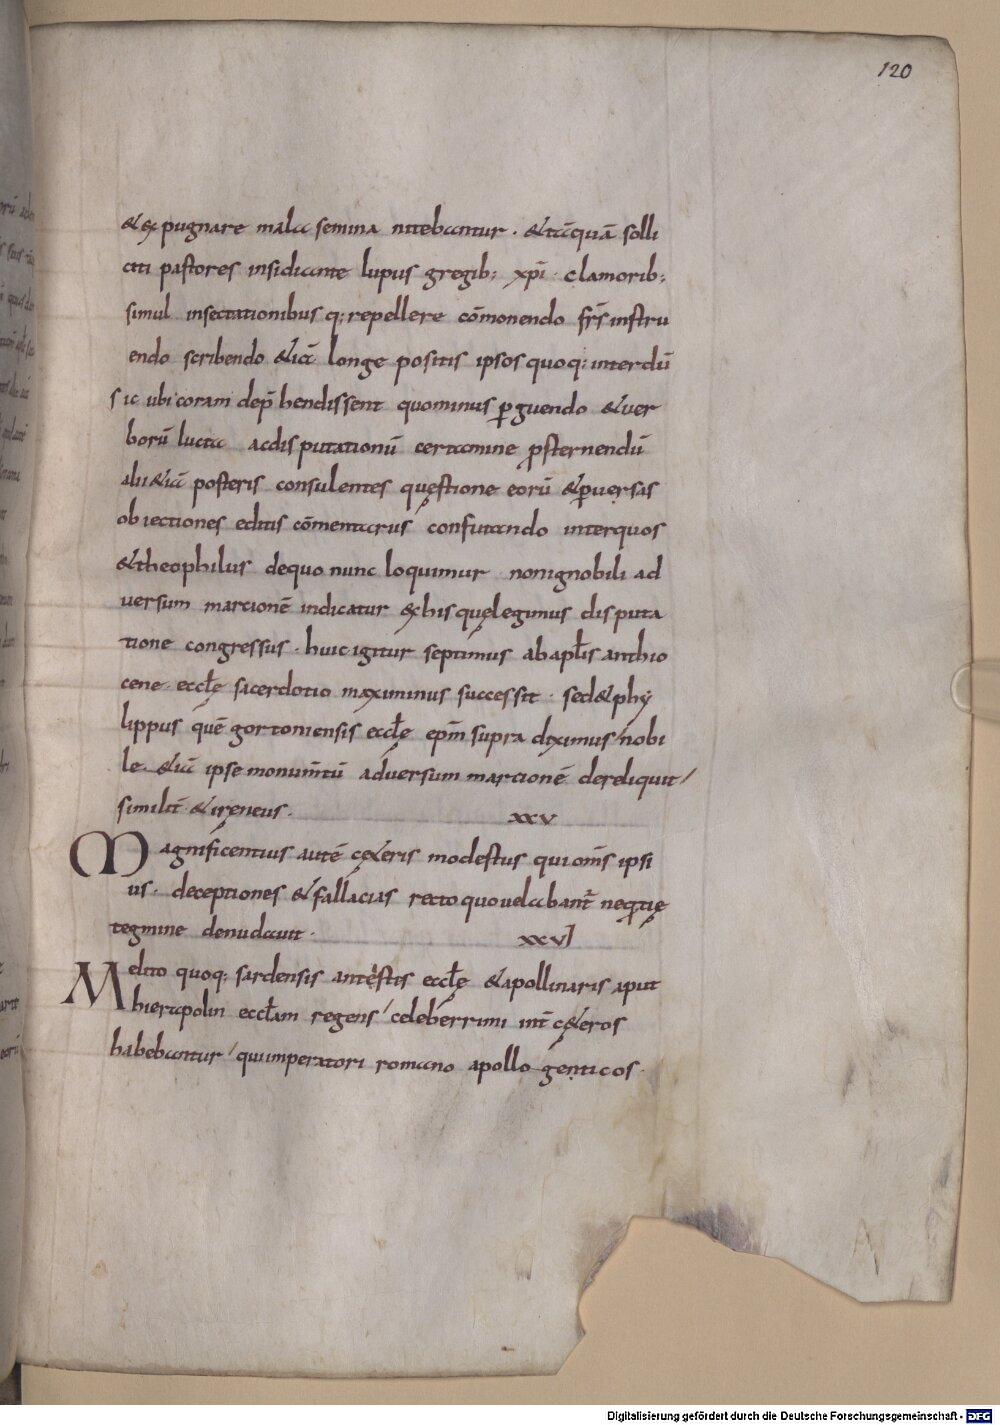 120
&expugnare mala semina nitebantur · &tāquā solli
citi pastores insidiante lupus gregib; xp̄i · clamorib;
simul insectationibusq; repellere cōmonendo fr̄s instru
endo scribendo &iā longe positis ipsos quoq; interdū
sic ubi coram dep̄hendissent quominus ꝑguendo &uer
borū lucta ac disputationū certamine ꝓsternendū
alii &iā posteris consulentes quęstione eorū &ꝑuersas
obiectiones editis cōmentarus confutando interquos
&theophilus dequo nunc loquimur nonignobili ad
uersum marcionē indicatur exhis quęlegimus disputa
tione congressus · huic igitur septimus abapl̄is anthio
cene eccl̄ę sacerdotio maximinus successit · sed&phy
lippus quē gortoniensis eccl̄ę ep̄m supra diximus nobi
le &iā ipse monum̄tū aduersum marcionē dereliquit
similit̄ &ireneus ·
xxv
Magnificentius autē cę&eris modestus qui om̄s ipsi
us · deceptiones &fallacias recto quo uelabant̄ neqtię
tegmine denudauit ·
xxvI
Melito quoq; sardensis antestis eccl̄ę &apollinaris aput
hierapolin eccl̄am regens celeberrimi int̄ cę&eros
habebantur quiimperatori romano apollogenticos ·
Digitalisierung gefördert durch die Deutsche Forschungsgemeinschaft - DFG